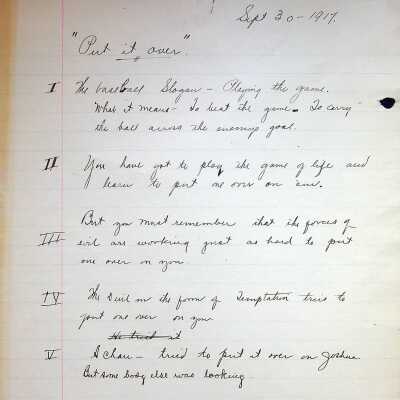 Sept 30 - 1917.
"Put it over".
I The baseball Slogan - Playing the game.
What it means - To beat the game. To carry
the ball across the enemys goal.
II You have got to play the game of life and
learn to put one over on 'em.
But you must remember that the forces of
III evil are working just as hard to put
one over on you.
IV The Devil in the form of Temptation tries to
put one over on you
He tried it
V Achan - tried to put it over on Joshua
But some body else was looking.